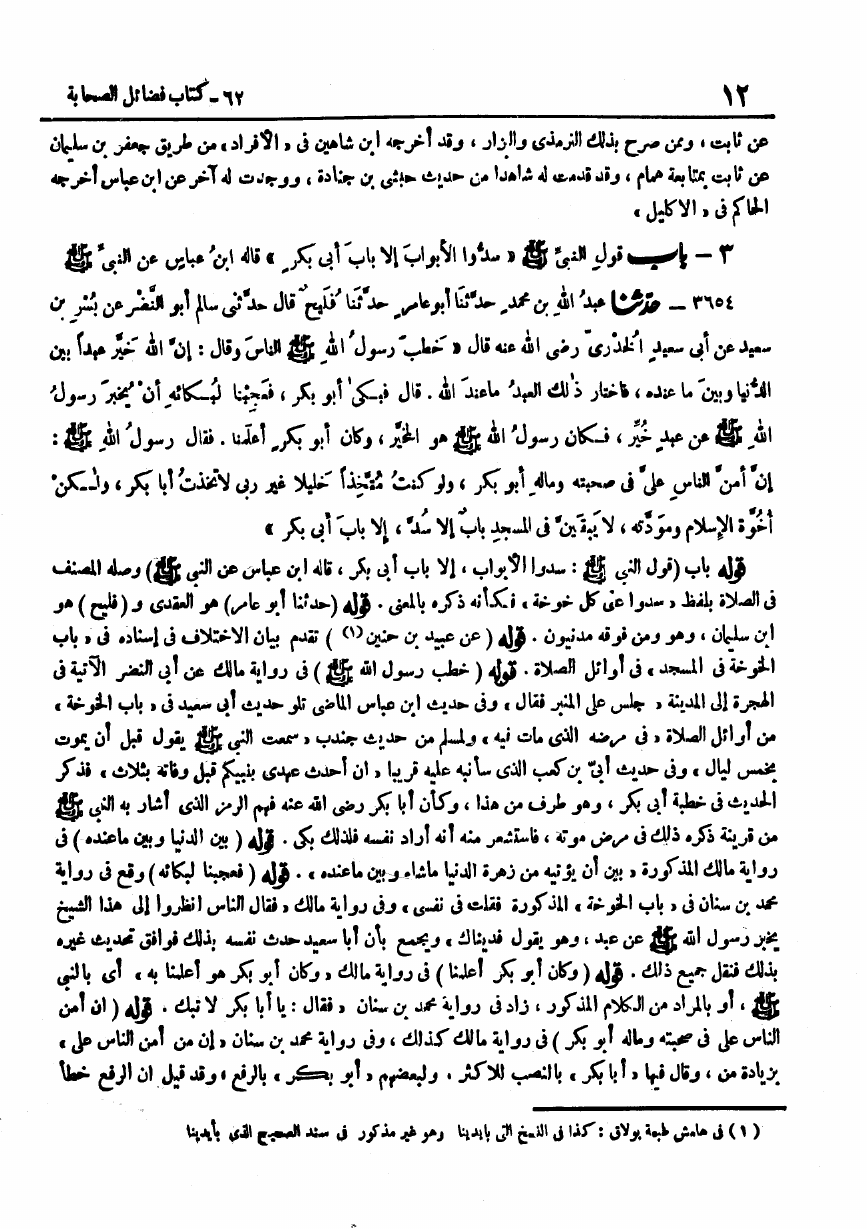 ١٢
٦٢ - كتاب فضائل الصحابة
عن ثابت ، وممن صرح بذلك الترمذى والبزار ، وقد أخرجه ابن شاهين فى « الأفراد » من طريق جعفر بن سليمان
عن ثابت بمتابعة همام ، وقد قدمت له شاهدا من حديث حبشى بن جنادة ، ووجدت له آخر عن ابن عباس أخرجه
الحاكم فى « الاكليل »
٣ - باب قولِ النبىِّ ﷺ « سدُّوا الأبوابَ إلا بابَ أبى بكرٍ » قاله ابنُ عباسٍ عن النبىِّ ﷺ
٣٦٥٤ - حدثنا عبدُ الله بن محمدٍ حدَّثنَا أبو عامرٍ حدَّثَنا فُليحٌ قال حدَّثنى سالم أبو النَّضْر عن بُسْرِ بن
سعيد عن أبى سعيدٍ الْخدْرىّ رضى الله عنه قال « خَطبَ رسولُ اللهِ ﷺ الناسَ وقال : إنَّ اللهَ خيَّر عبداً بين
الدُّنيا وبينَ ما عنده ، فاختار ذٰلك العبدُ ماعندَ الله . قال فبكىٰ أبو بكر ، فعَجِبْنا لبُكائهِ أنْ يُخبرَ رسولُ
اللهِ ﷺ عن عبدٍ خُيِّرَ ، فكان رسولُ الله ﷺ هو المخيَّر ، وكان أبو بكرٍ أعلَمنا . فقال رسولُ اللهِ ﷺ :
إنَّ أمنَّ الناسِ علىَّ فى صحبتهِ ومالهِ أبو بكر ، ولو كنتُ مُتَّخِذاً خليلا غير ربى لاتخذتُ أبا بكر ، ولٰكنْ
أخُوَّة الإسلام ومودَّته ، لا يَبقَينَّ فى المسجدِ بابٌ إلا سُدَّ ، إلا بابَ أبى بكر »
قوله باب (قول النبي ﷺ : سدوا الأبواب ، إلا باب أبى بكر ، قاله ابن عباس عن النبى ﷺ) وصله المصنف
فى الصلاة بلفظ « سدوا عنى كل خوخة » فكأنه ذكره بالمعنى . قوله (حدثنا أبو عامر) هو العقدى و (فليح) هو
ابن سليمان ، وهو ومن فوقه مدنيون . قوله ( عن عبيد بن حنين (١) ) تقدم بيان الاختلاف فى إسناده فى « باب
الخوخة فى المسجد » فى أوائل الصلاة . قوله ( خطب رسول الله ﷺ ) فى رواية مالك عن أبى النضر الآتية فى
الهجرة إلى المدينة « جلس على المنبر فقال » وفى حديث ابن عباس الماضى تلو حديث أبى سعيد فى « باب الخوخة »
من أوائل الصلاة « فى مرضه الذى مات فيه » ولمسلم من حديث جندب « سمعت النبى ﷺ يقول قبل أن يموت
بخمس ليال » وفى حديث أبىّ بن كعب الذى سأنبه عليه قريبا « ان أحدث عهدى بنبيكم قبل وفاته بثلاث » فذكر
الحديث فى خطبة أبى بكر ، وهو طرف من هذا ، وكأن أبا بكر رضى الله عنه فهم الرمز الذى أشار به النبى ﷺ
من قرينة ذكره ذلك فى مرض موته ، فاستشعر منه أنه أراد نفسه فلذلك بكى . قوله ( بين الدنيا وبين ماعنده ) فى
رواية مالك المذكورة « بين أن يؤتيه من زهرة الدنيا ماشاء وبين ماعنده » . قوله ( فعجبنا لبكائه) وقع فى رواية
محمد بن سنان فى « باب الخوخة » المذكورة فقلت فى نفسى ، وفى رواية مالك « فقال الناس انظروا إلى هذا الشيخ
يخبر رسول الله ﷺ عن عبد ، وهو يقول فديناك » ويجمع بأن أبا سعيد حدث نفسه بذلك فوافق تحديث غيره
بذلك فنقل جميع ذلك . قوله ( وكان أبو بكر أعلمنا ) فى رواية مالك « وكان أبو بكر هو أعلمنا به » أى بالنبي
ﷺ ، أو بالمراد من الكلام المذكور ، زاد فى رواية محمد بن سنان « فقال : يا أبا بكر لا تبك . قوله ( ان أمن
الناس على فى صحبته وماله أبو بكر ) فى رواية مالك كذلك ، وفى رواية محمد بن سنان « إن من أمن الناس على »
بزيادة من ، وقال فيها « أبا بكر » بالنصب للاكثر ، ولبعضهم « أبو بكر » بالرفع ، وقد قيل ان الرفع خطأ
(١) فى هامش طبعة بولاق : كذا فى النسخ التى بايدينا وهو غير مذكور فى سند الصحيح الذى بأيدينا